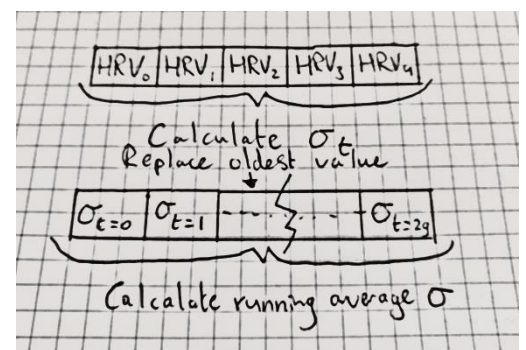 HRV₀ HRV₁ HRV₂ HRV₃ HRV₄
Calculate σₜ
Replace oldest value
σₜ₌₀ σₜ₌₁ ------ σₜ₌₂₉
Calculate running average σ